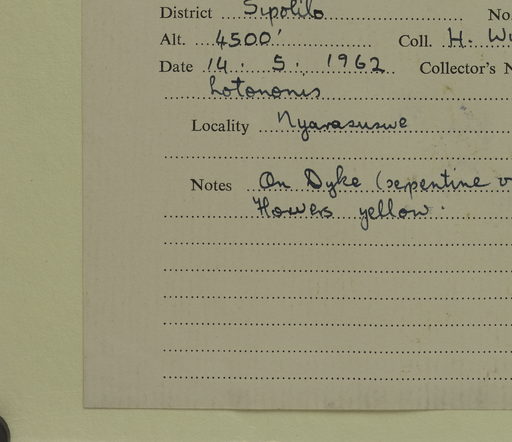 District Sipolilo No.
Alt. 4500' Coll. H. W
Date 14. 5. 1962 Collector's N
Lotononis
Locality Nyarasuswe
Notes On Dyke (serpentine
Flowers yellow.